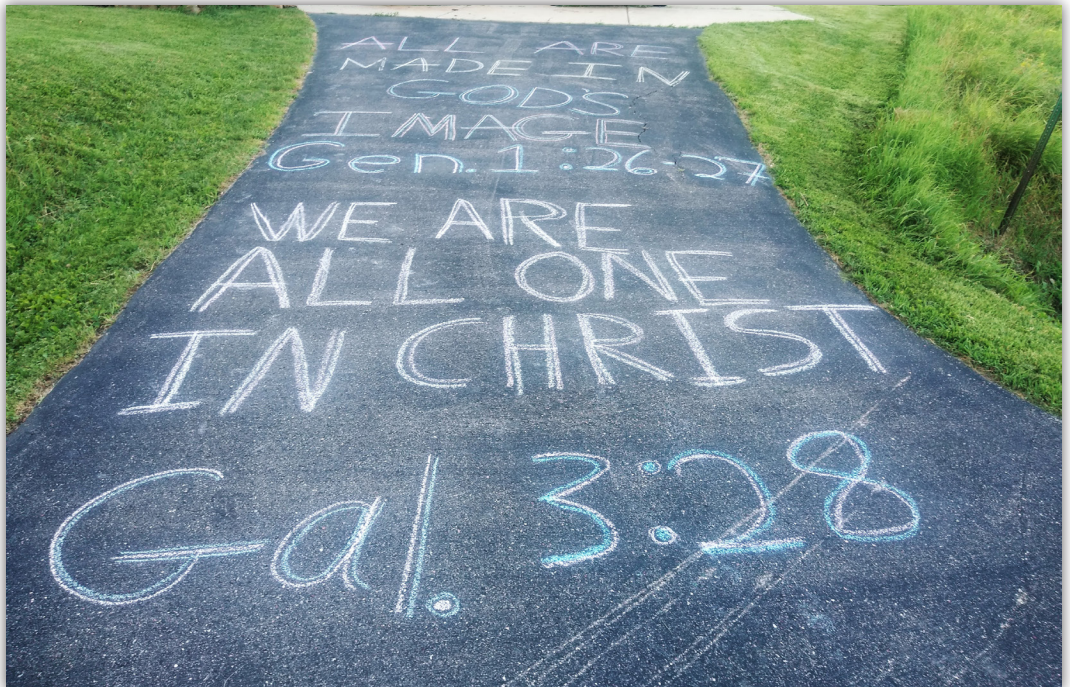 ALL ARE
MADE IN
GOD'S
IMAGE
Gen. 1:26-27
WE ARE
ALL ONE
IN CHRIST
Gal. 3:28